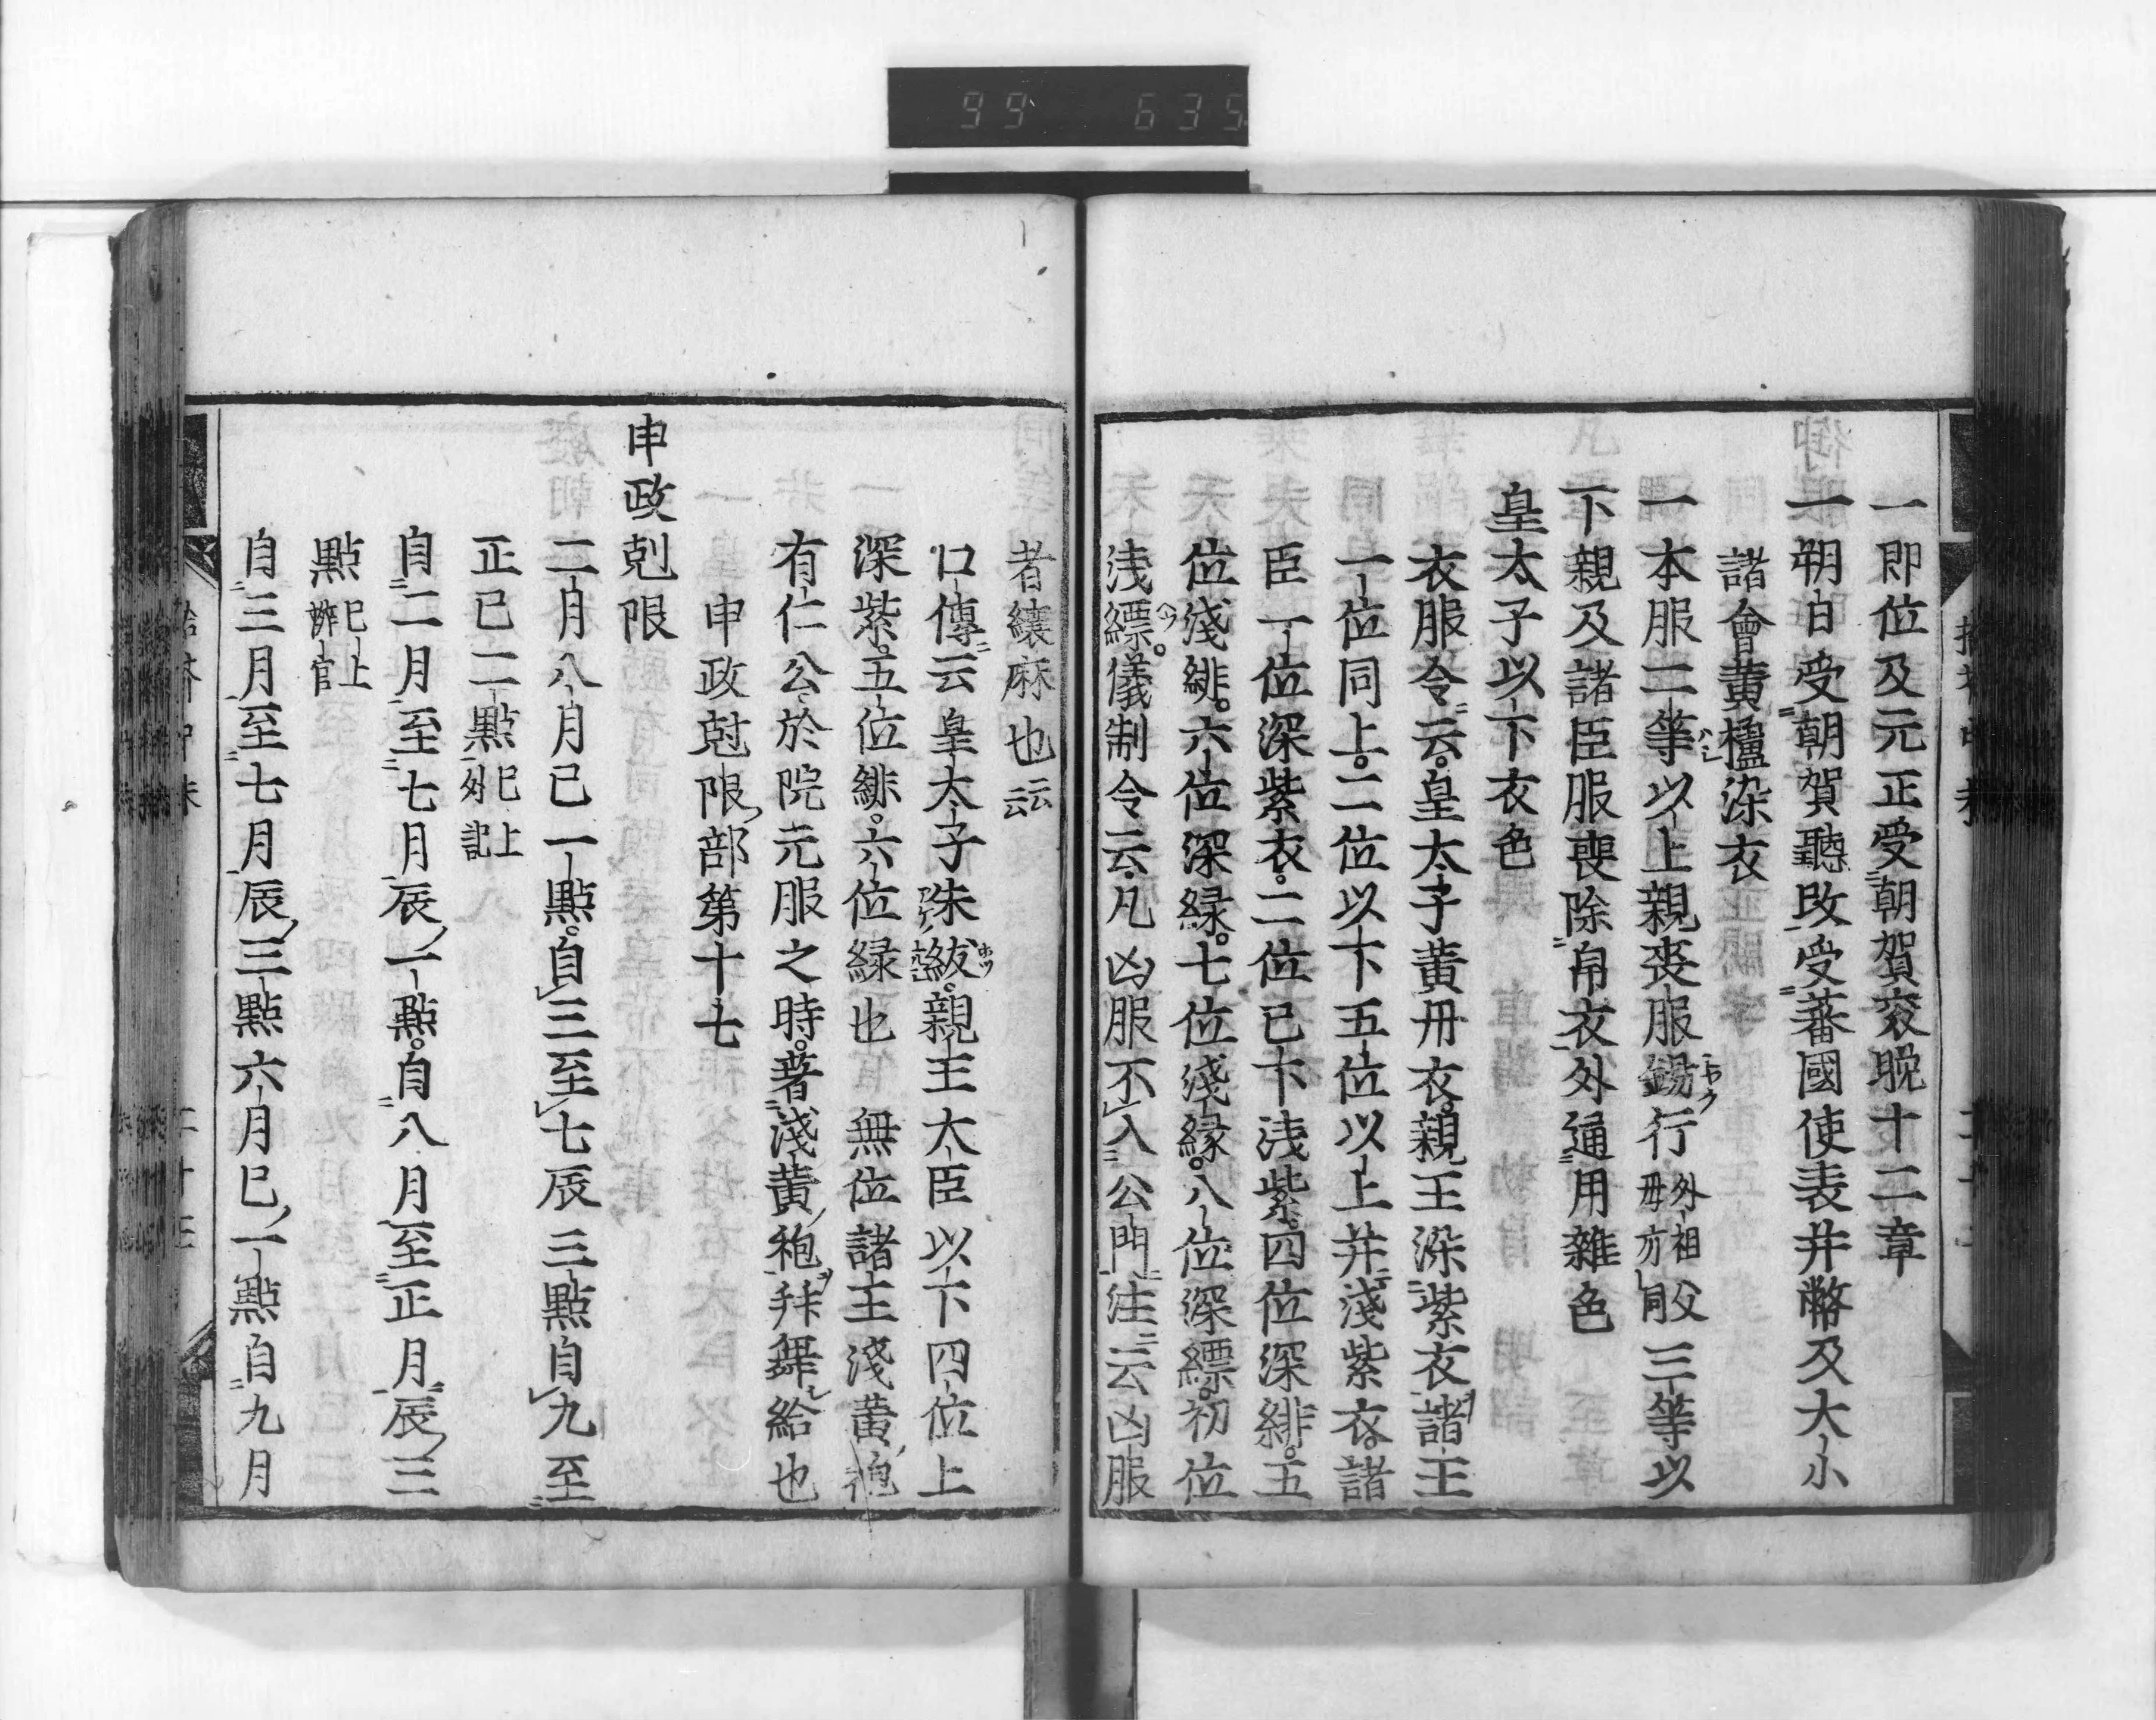 99 635
一即位及元正受朝賀袞晚十二章
一朔日受朝賀聽政受蕃國使表并幣及大小
諸會黃櫨染衣
一本服二等以上親喪服錫行外祖父母方同三等以
下親及諸臣服喪除帛衣外通用雜色
皇太子以下衣色
衣服令云皇太子黃丹衣親王深紫衣諸王
一位同上二位以下五位以上并淺紫衣諸
臣一位深紫衣二位已下淺紫四位深緋五
位淺緋六位深緑七位淺緑八位深縹初位
淺縹儀制令云凡凶服不入公門注云凶服
者縗麻也云云
口傳云皇太子朱紱親王大臣以下四位上
深紫五位緋六位緑也 無位諸王淺黃袍
有仁公於院元服之時著淺黃袍拜舞給也
申政尅限部第十七
申政尅限
二月八月巳一點自三至七辰三點自九至
正巳二點巳上外記
自二月至七月辰一點自八月至正月辰三
點巳上辨官
自三月至七月辰三點六月巳一點自九月